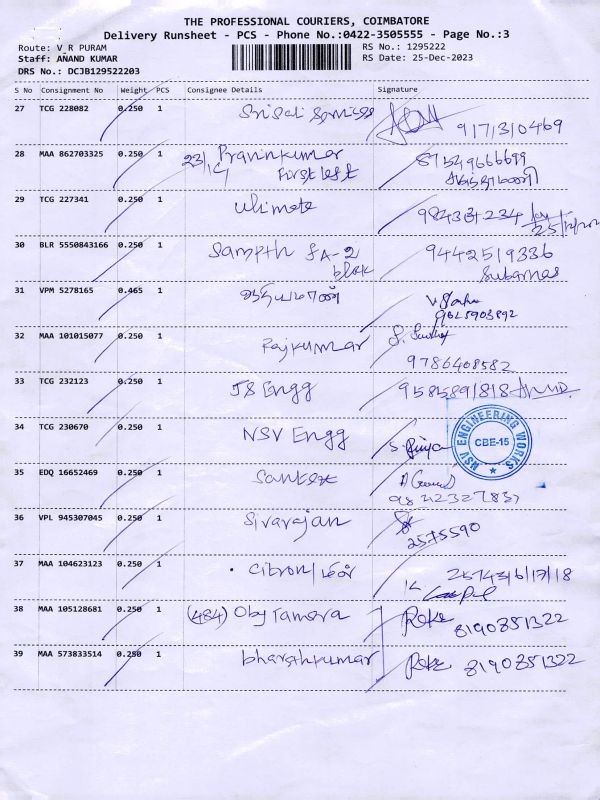 THE PROFESSIONAL COURIERS, COIMBATORE
Delivery Runsheet - PCS - Phone No.:0422-3505555 - Page No.:3
Route: V R PURAM
RS No.: 1295222
Staff: ANAND KUMAR
RS Date: 25-Dec-2023
DRS No.: DCJB129522203
S No Consignment No Weight PCS Consignee Details Signature
27 TCG 228082 0.250 1
9171310469
28 MAA 862703325 0.250 1 23/14 Pravinkumar 87549666699
First left
29 TCG 227341 0.250 1 Ultimate
30 BLR 5550843166 0.250 1 Sampth SA-2 9442519336
block
31 VPM 5278165 0.465 1
32 MAA 101015077 0.250 1 Rajkumar
9786408582
33 TCG 232123 0.250 1 JS Engg 9585891818
34 TCG 230670 0.250 1 NSV Engg S. Priya
NSV ENGINEERING WORKS
CBE-15
35 EDQ 16652469 0.250 1
36 VPL 945307045 0.250 1 Sivarajan
2575590
37 MAA 104623123 0.250 1 Citron 25743/6/17/18
38 MAA 105128681 0.250 1 (484) 8190851322
39 MAA 573833514 0.250 1 bharathkumar 8190851322